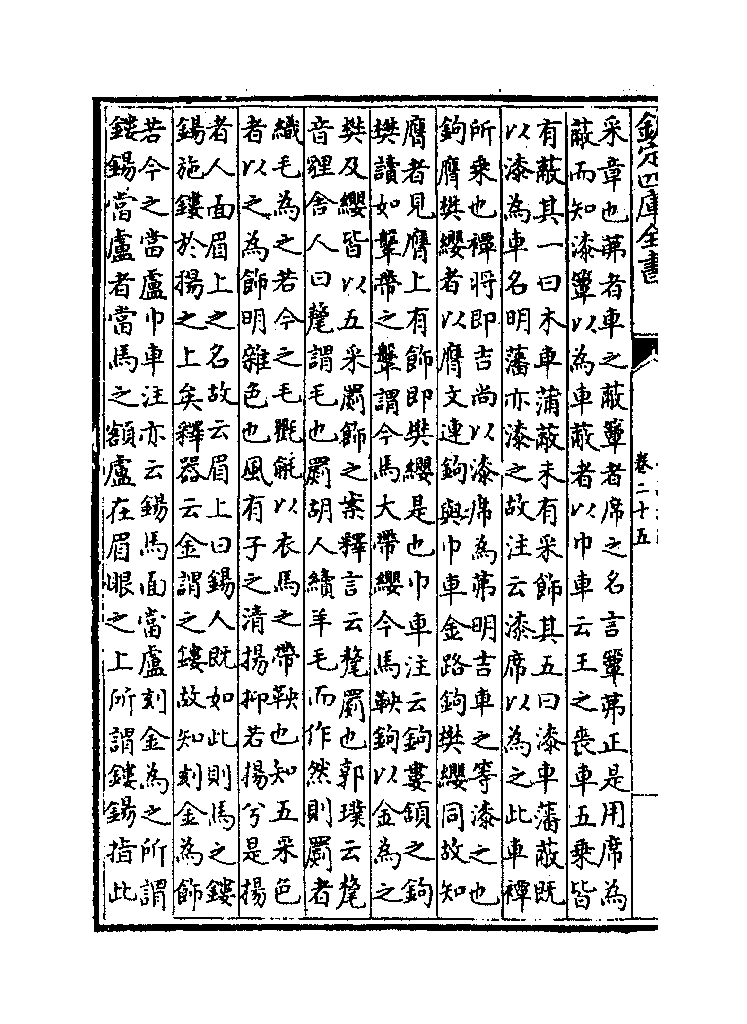 欽定四庫全書
卷二十五
采章也茀者車之蔽簟者席之名言簟茀正是用席為
蔽而知漆簟以為車蔽者以巾車云王之喪車五乗皆
有蔽其一曰木車蒲蔽未有采飾其五曰漆車藩蔽既
以漆為車名明藩亦漆之故注云漆席以為之此車禫
所乗也禫將即吉尚以漆席為茀明吉車之等漆之也
鉤膺樊纓者以膺文連鉤與巾車金路鉤樊纓同故知
膺者見膺上有飾即樊纓是也巾車注云鉤婁頷之鉤
樊讀如鞶帶之鞶謂今馬大帶纓今馬鞅鉤以金為之
樊及纓皆以五采罽飾之案釋言云氂罽也郭璞云氂
音貍舍人曰氂謂毛也罽胡人續羊毛而作然則罽者
織毛為之若今之毛氍毹以衣馬之帶鞅也知五采色
者以之為飾明雜色也風有子之清揚抑若揚兮是揚
者人面眉上之名故云眉上曰錫人既如此則馬之鏤
錫施鏤於揚之上矣釋器云金謂之鏤故知刻金為飾
若今之當盧巾車注亦云錫馬面當盧刻金為之所謂
鏤錫當盧者當馬之額盧在眉眼之上所謂鏤錫指此